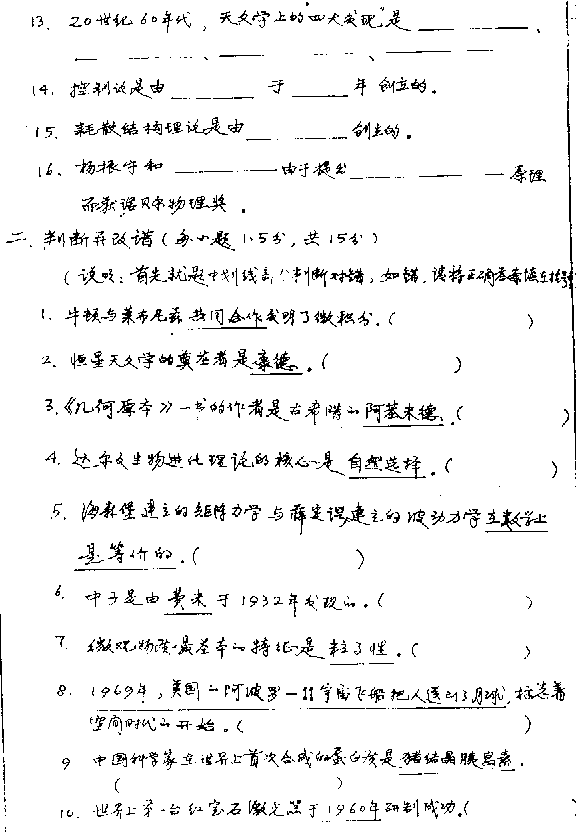 13. 20世纪60年代，天文学上的四大发现"是________、
____ ____、____ ____、____ ____
14. 控制论是由______于_____年创立的。
15. 耗散结构理论是由______创立的。
16. 杨振宁和________由于提出________原理
而获诺贝尔物理奖。
二、判断并改错（每小题1.5分，共15分）
（说明：首先就题中划线部分判断对错，如错，请将正确答案填在括号
1. 牛顿与莱布尼兹共同合作发明了微积分.（ ）
2. 恒星天文学的奠基者是康德。（ ）
3.《几何原本》一书的作者是古希腊的阿基米德.（ ）
4. 达尔文生物进化理论的核心是自然选择。（ ）
5. 海森堡建立的矩阵力学与薛定谔建立的波动力学在数学上
是等价的.（ ）
6. 中子是由费米于1932年发现的.（ ）
7. 微观物质最基本的特征是粒子性.（ ）
8. 1969年,美国的阿波罗—11宇宙飞船把人送到了月球,标志着
空间时代的开始.（ ）
9 中国科学家在世界上首次合成的蛋白质是猪结晶胰岛素.
（ ）
10. 世界上第一台红宝石激光器于1960年研制成功.（